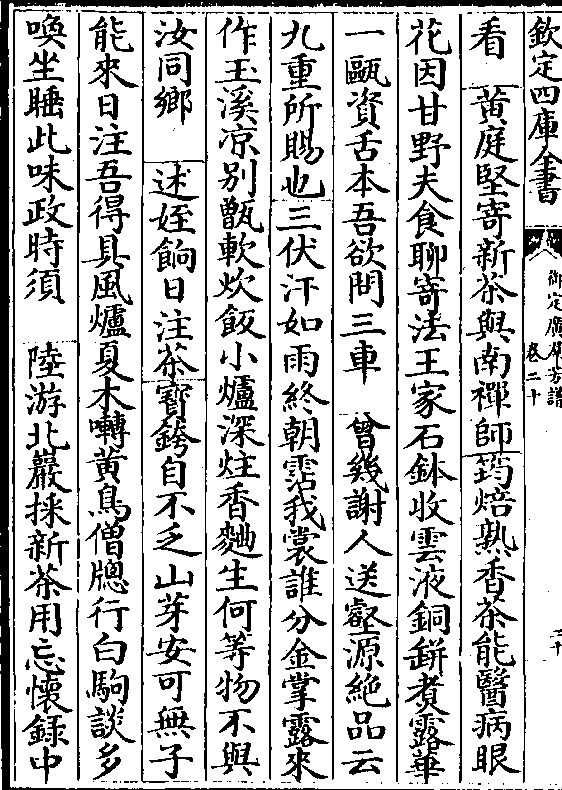 欽定四庫全書
御定廣羣芳譜
卷二十
二十
看　黄庭堅寄新茶與南禪師筠焙熟香茶能醫病眼
花因甘野夫食聊寄法王家石鉢收雲液銅缾煮露華
一甌資舌本吾欲問三車　曾幾謝人送壑源絶品云
九重所賜也三伏汗如雨終朝霑我裳誰分金掌露來
作玉溪凉别甑軟炊飯小爐深炷香麴生何等物不與
汝同鄉　述姪餉日注茶寳銙自不乏山芽安可無子
能來日注吾得具風爐夏木囀黄鳥僧牕行白駒談多
喚坐睡此味政時須　陸游北巖採新茶用忘懷録中